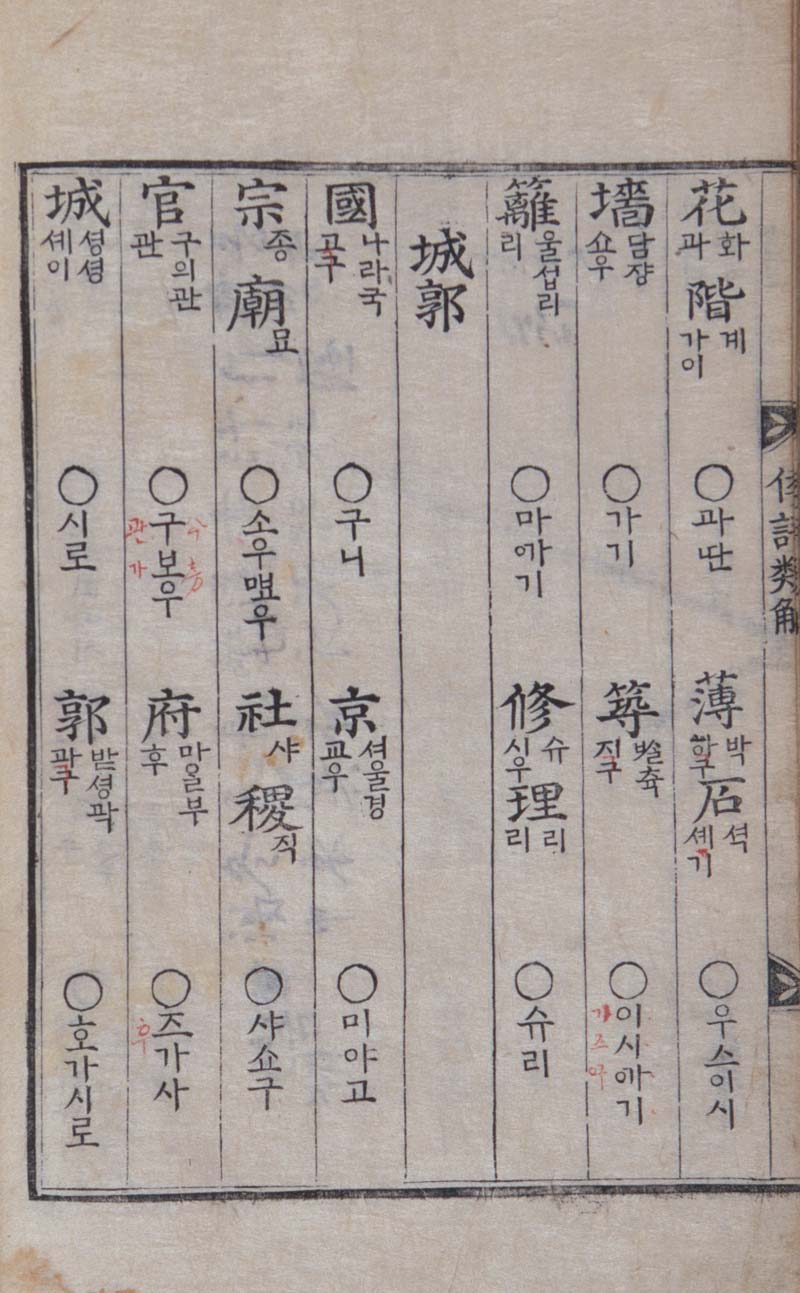 倭語類解
花 화 과 階 계 가이 ○과ᄯᅡᆫ 薄 박 하구 石 셕 셰기 ○우스이시
墻 담쟝 쇼우 ○가기 築 ᄡᆞᆯ츅 지구 ○이시ᅁᅡ기
籬 울섭리 리 ○마ᅁᅡ기 修 슈 시우 理 리 리 ○슈리
城郭
國 나라국 고구 ○구니 京 셔울경 교우 ○미야고
宗 종 廟 묘 ○소우ᄜᅭ우 社 샤 稷 직 ○샤쇼구
官 구의관 관 ○구보우 관가 府 마ᄋᆞᆯ부 후 ○즈가사 후
城 셩셩 셰이 ○시로 郭 밧셩곽 곽구 ○호가시로